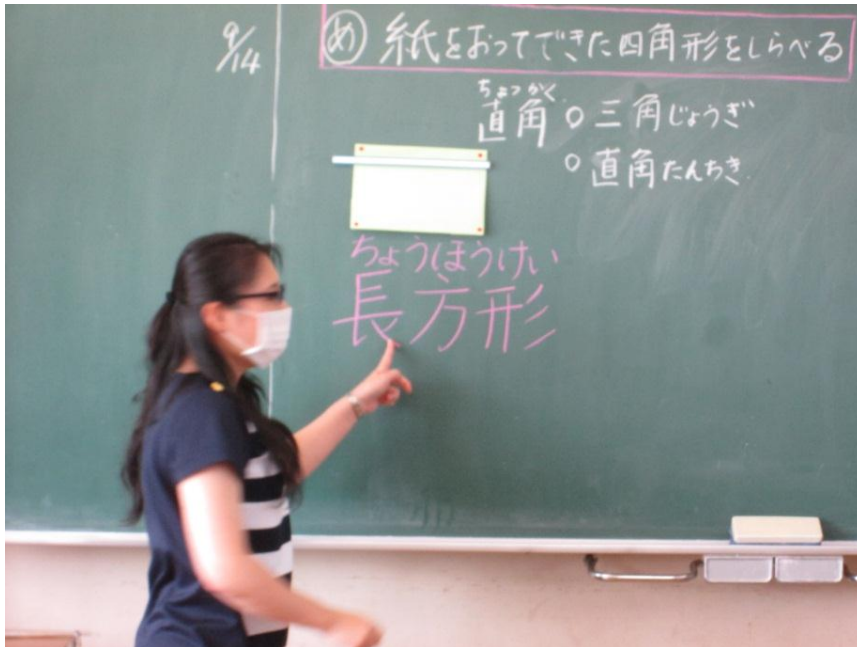 9/14
め 紙をおってできた四角形をしらべる
ちょっかく
直角 ○三角じょうぎ
○直角たんちき
ちょうほうけい
長方形